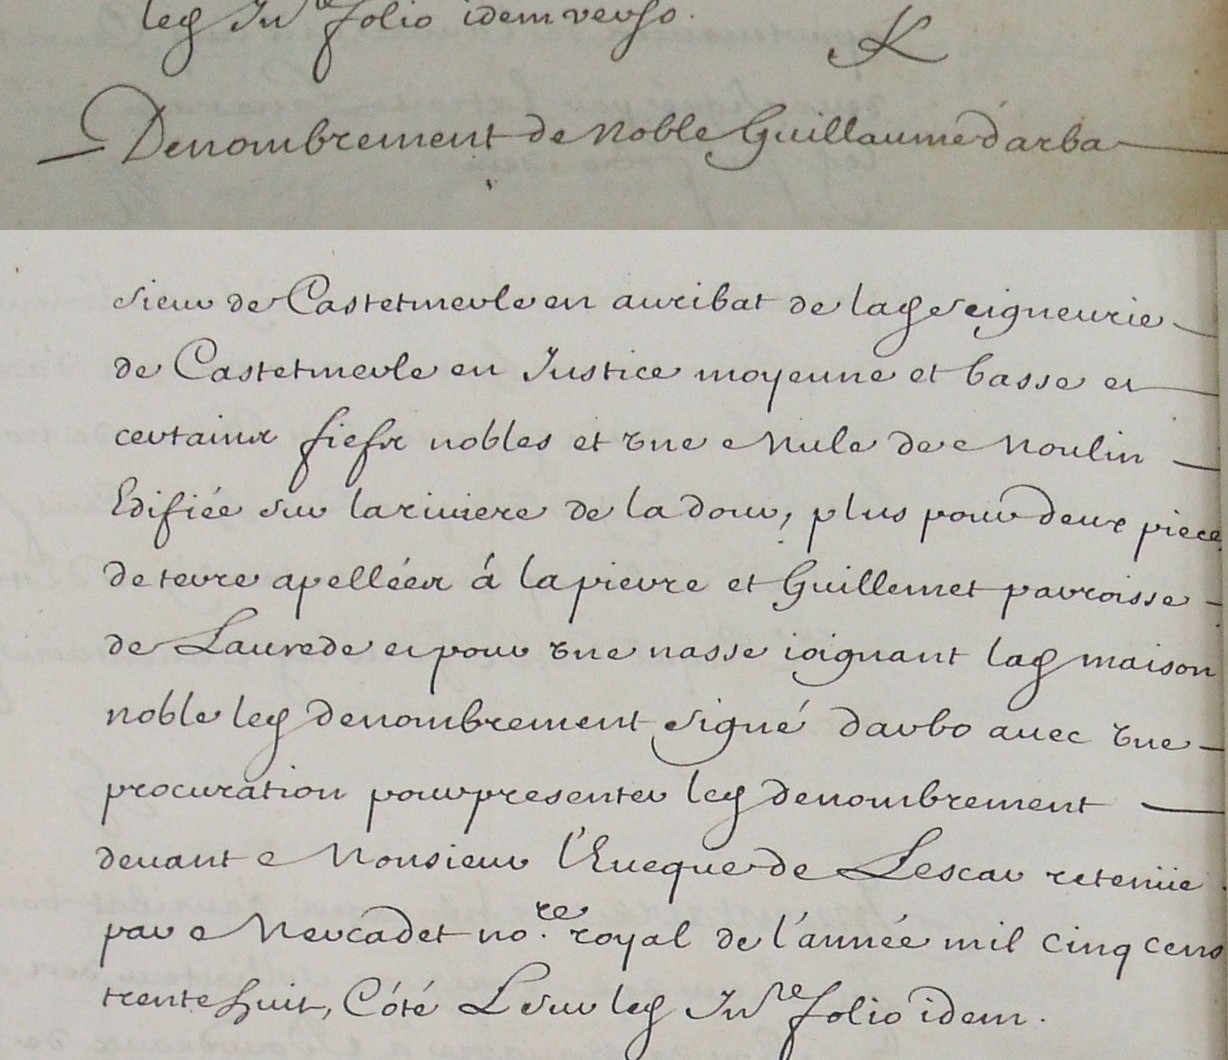 led Inre folio idem verso.
K
Denombrement de Noble Guillaume darba
sieur de Castetmerle en auribat de lad seigneurie
de Castetmerle en Justice moyenne et basse et
certains fiefs nobles et une Mule de Moulin
Edifiée sur la riuiere de la dour, plus pour deux piece
de terre apellées á la pierre et Guillemet parroisse
de Laurede et pour une nasse ioignant lad maison
noble led denombrement signé darbo auec une
procuration pour presenter led denombrement
deuant Monsieur l'Eueque de Lescar retenüe
par Mercadet no.re royal de l'année mil cinq cens
trente huit, Côté L sur led Inre folio idem.